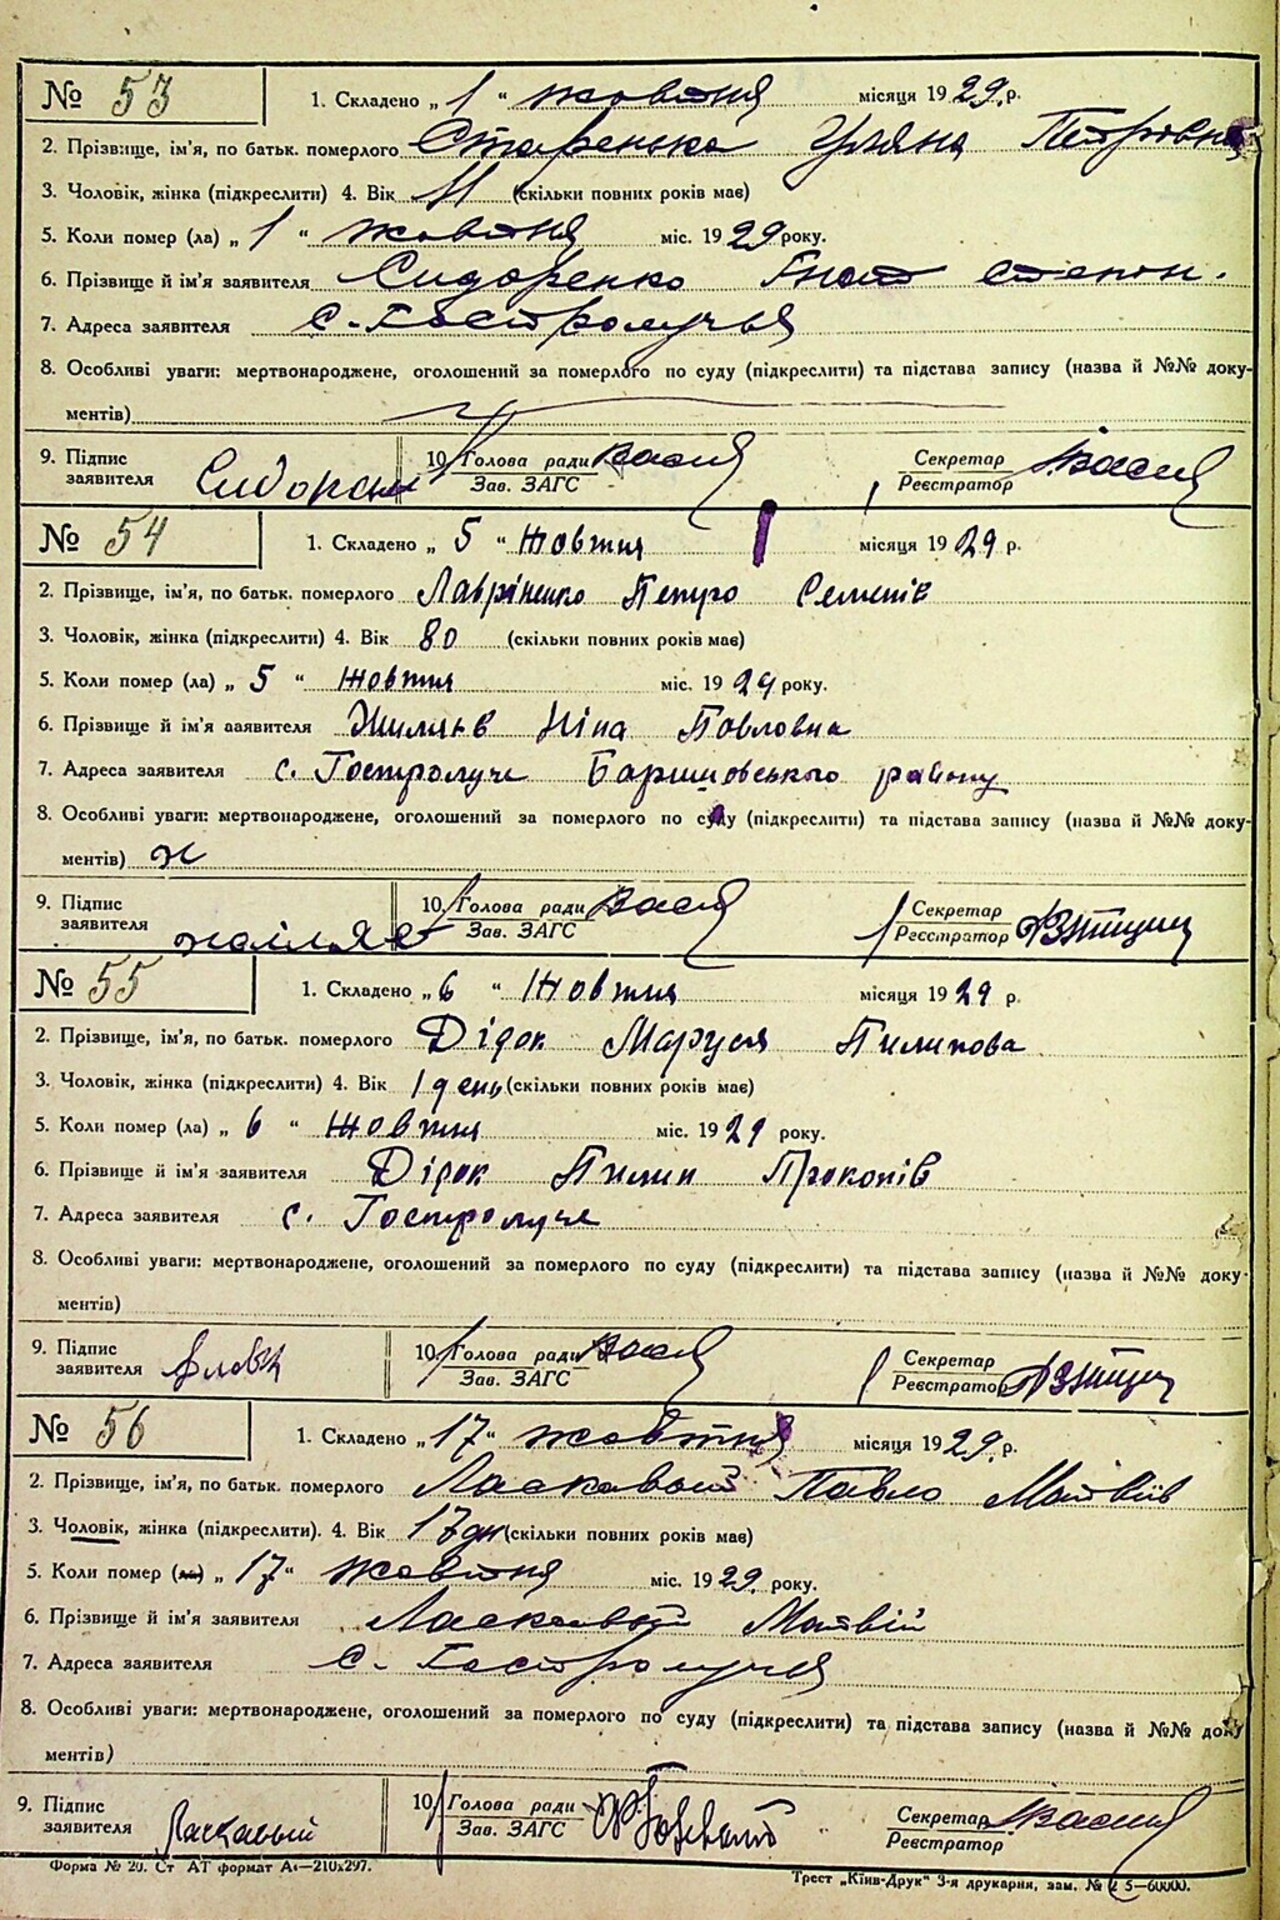 № 53 1. Складено „ 1 “ жовтня місяця 1929 р.
2. Прізвище, ім'я, по батьк. померлого Старенька Уляна Петрівна
3. Чоловік, жінка (підкреслити) 4. Вік 11 (скільки повних років має)
5. Коли помер (ла) „ 1 “ жовтня міс. 1929 року.
6. Прізвище й ім'я заявителя Сидоренко Гнат степан.
7. Адреса заявителя с. Гостролуччя
8. Особливі уваги: мертвонароджене, оголошений за померлого по суду (підкреслити) та підстава запису (назва й №№ доку-
ментів)
9. Підпис заявителя 10. Голова ради Зав. ЗАГС Секретар Реєстратор
№ 54 1. Складено „ 5 “ Жовтня місяця 1929 р.
2. Прізвище, ім'я, по батьк. померлого Лавріненко Петро Семенів
3. Чоловік, жінка (підкреслити) 4. Вік 80 (скільки повних років має)
5. Коли помер (ла) „ 5 “ Жовтня міс. 1929 року.
6. Прізвище й ім'я заявителя Ніна Повловна
7. Адреса заявителя с. Гостролуче Баришовського району
8. Особливі уваги: мертвонароджене, оголошений за померлого по суду (підкреслити) та підстава запису (назва й №№ доку-
ментів)
9. Підпис заявителя 10. Голова ради Зав. ЗАГС Секретар Реєстратор
№ 55 1. Складено „ 6 “ Жовтня місяця 1929 р.
2. Прізвище, ім'я, по батьк. померлого Дідок Маруся Пилипова
3. Чоловік, жінка (підкреслити) 4. Вік 1 день (скільки повних років має)
5. Коли помер (ла) „ 6 “ Жовтня міс. 1929 року.
6. Прізвище й ім'я заявителя Дідок Пилип Прокопів
7. Адреса заявителя с. Гостролуче
8. Особливі уваги: мертвонароджене, оголошений за померлого по суду (підкреслити) та підстава запису (назва й №№ доку-
ментів)
9. Підпис заявителя 10. Голова ради Зав. ЗАГС Секретар Реєстратор
№ 56 1. Складено „ 17 “ жовтня місяця 1929. р.
2. Прізвище, ім'я, по батьк. померлого Ласкавый Павло Матвіїв
3. Чоловік, жінка (підкреслити). 4. Вік 17 дн (скільки повних років має)
5. Коли помер (ла) „ 17 “ жовтня міс. 1929. року.
6. Прізвище й ім'я заявителя Ласкавый Матвій
7. Адреса заявителя с. Гостролуччя
8. Особливі уваги: мертвонароджене, оголошений за померлого по суду (підкреслити) та підстава запису (назва й №№ доку-
ментів)
9. Підпис заявителя Ласкавый 10. Голова ради Зав. ЗАГС Секретар Реєстратор
Форма № 20. Ст АТ формат А4—210х297.
Трест „Київ-Друк“ 3-я друкарня, зам. № 2 5—60000.